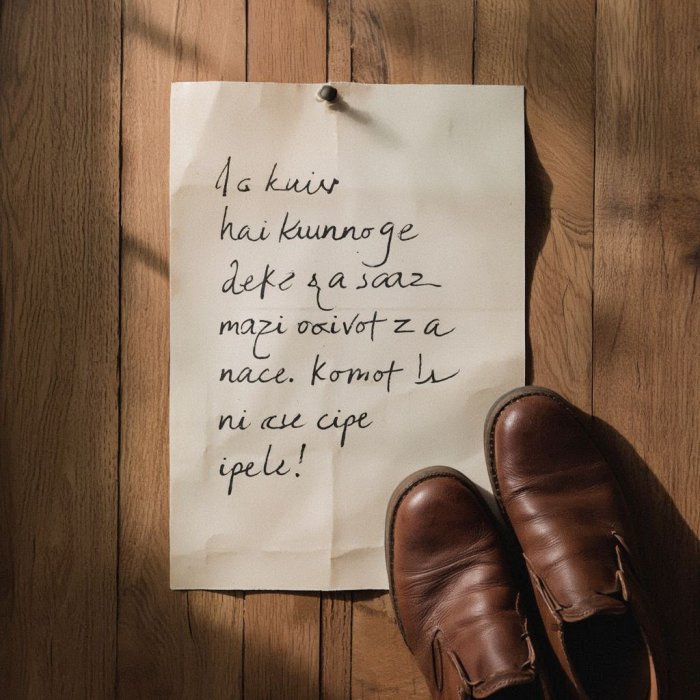 hai kuunnoge
deke za saaz
mazi osivot z a
nace. Komot
ni cipe
ipele!